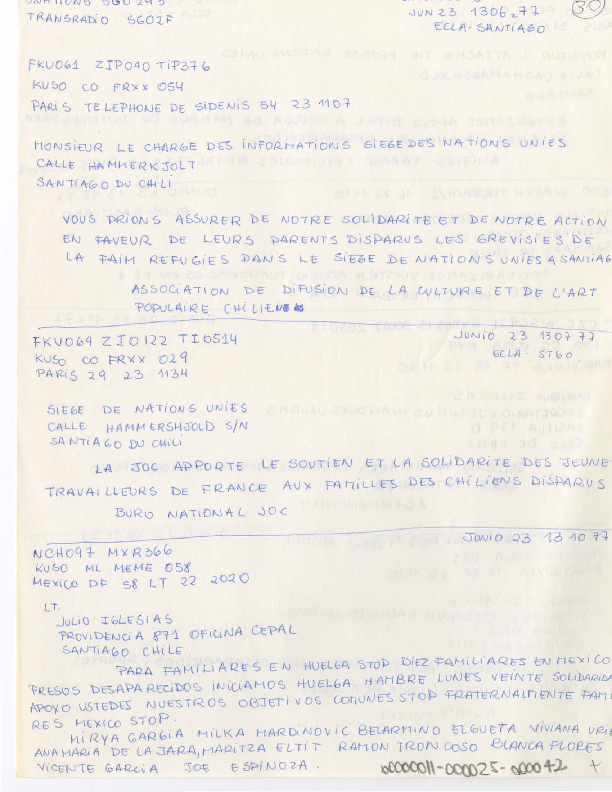 TRANSRADIO SG02F
JUN 23 1306-77
30
ECLA-SANTIAGO
FKU061 ZIP040 TIP376
KUSO CO FRXX 054
PARIS TELEPHONE DE SIDENIS 54 23 1107
MONSIEUR LE CHARGE DES INFORMATIONS SIEGE DES NATIONS UNIES
CALLE HAMMERKJOLT
SANTIAGO DU CHILI
VOUS PRIONS ASSURER DE NOTRE SOLIDARITE ET DE NOTRE ACTION
EN FAVEUR DE LEURS PARENTS DISPARUS LES GREVISIES DE
LA FAIM REFUGIES DANS LE SIEGE DE NATIONS UNIES A SANTIAG
ASSOCIATION DE DIFUSION DE LA CULTURE ET DE L'ART
POPULAIRE CHILIEN
FKU064 ZIO122 TI0514
JUNIO 23 1307 77
KUSO CO FRXX 029
ECLA- STGO.
PARIS 29 23 1134
SIEGE DE NATIONS UNIES
CALLE HAMMERSHJOLD S/N
SANTIAGO DU CHILI
LA JOC APPORTE LE SOUTIEN ET LA SOLIDARITE DES "JEUNE
TRAVAILLEURS DE FRANCE AUX FAMILLES DES CHILIENS DISPARUS
BURO NATIONAL JOC
JUNIO 23 13 10 77
NCH097 MXR366
KUSO ML MEME 058
MEXICO DF 58 LT 22 2020
LT.
JULIO IGLESIAS
PROVIDENCIA 871 OFICINA CEPAL
SANTIAGO CHILE.
PARA FAMILIARES EN HUELGA STOP DIEZ FAMILIARES EN MEXICO
PRESOS DESAPARECIDOS INICIAMOS HUELGA HAMBRE LUNES VEINTE SOLIDARIDA
APOYO USTEDES NUESTROS OBJETIVOS COMUNES STOP FRATERNALMENTE FAMI
RES MEXICO STOP.
MIRYA GARGIA MILKA MARDINOVIC BELARMINO ELGUETA VIVIANA URI
ANA MARIA DE LA JARA, MARITZA ELTIT RAMON TRONCOSO BLANCA FLORES
VICENTE GARCIA JOE ESPINOZA.
0000011-000025-000042 +